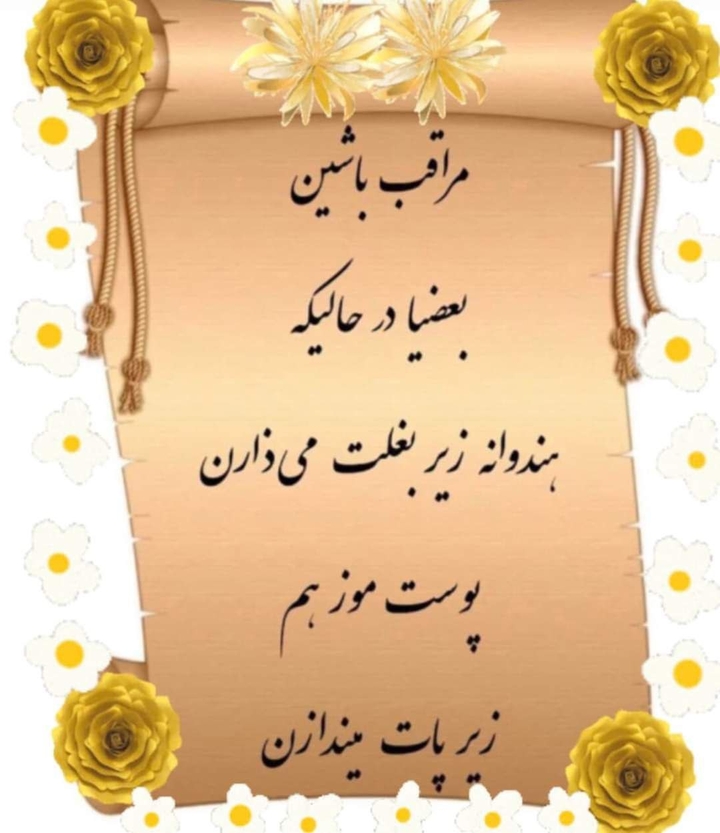 مراقب باشین
بعضیا در حالیکه
هندوانه زیر بغلت می‌ذارن
پوست موز هم
زیر پات میندازن